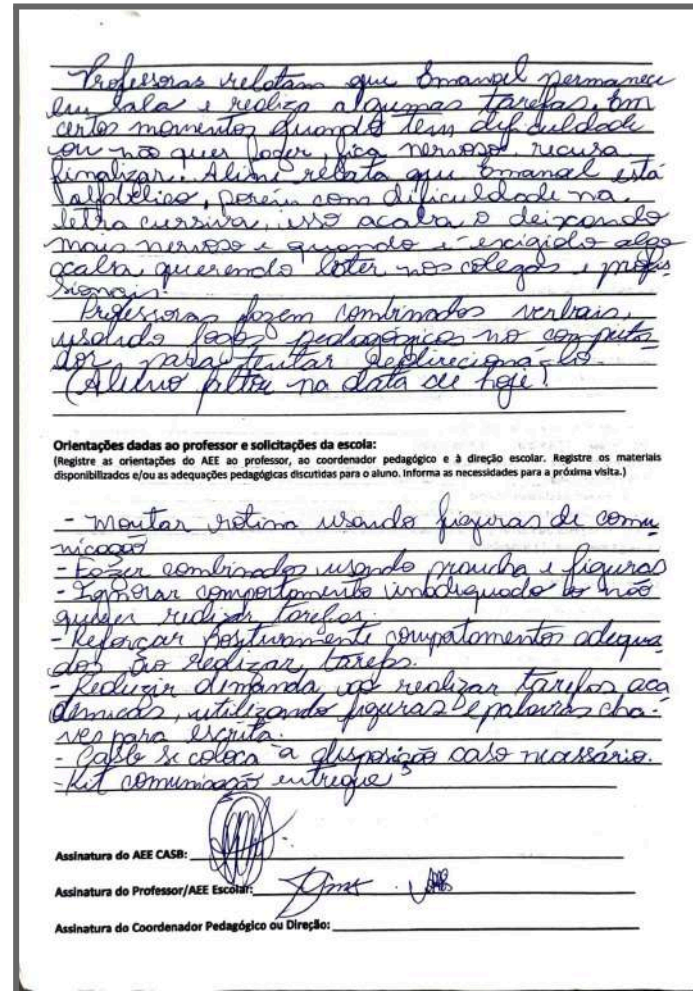 Professoras relatam que Emanoel permanece
em sala e realiza algumas tarefas. Em
certos momentos quando tem dificuldade
ou não quer fazer, fica nervoso, recusa
finalizar. relata que Emanoel está
alfabético, porém com dificuldade na
letra cursiva, isso acaba o deixando
mais nervoso e quando é exigido algo
acaba querendo bater nos colegas e profis
sionais.
Professoras fazem combinados verbais,
usando jogos pedagógicos no computa
dor para tentar redirecioná-lo.
(Aluno faltou na data de hoje)
Orientações dadas ao professor e solicitações da escola:
(Registre as orientações do AEE ao professor, ao coordenador pedagógico e à direção escolar. Registre os materiais
disponibilizados e/ou as adequações pedagógicas discutidas para o aluno. Informa as necessidades para a próxima visita.)
- Montar rotina usando figuras de comu
nicação
- Fazer combinados usando prancha e figuras
- Ignorar comportamento inadequado ao não
querer realizar tarefas.
- Reforçar positivamente comportamentos adequa
dos ao realizar tarefas.
- Reduzir demanda, ao realizar tarefas aca
dêmicas, utilizando figuras e palavras cha-
ves para escrita.
- CASB se coloca à disposição caso necessário.
- Kit comunicação entregue
Assinatura do AEE CASB:
Assinatura do Professor/AEE Escolar:
Assinatura do Coordenador Pedagógico ou Direção: